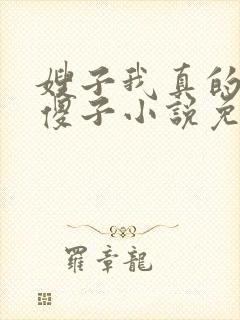 嫂子我真的
傻子小説免
羅章龍